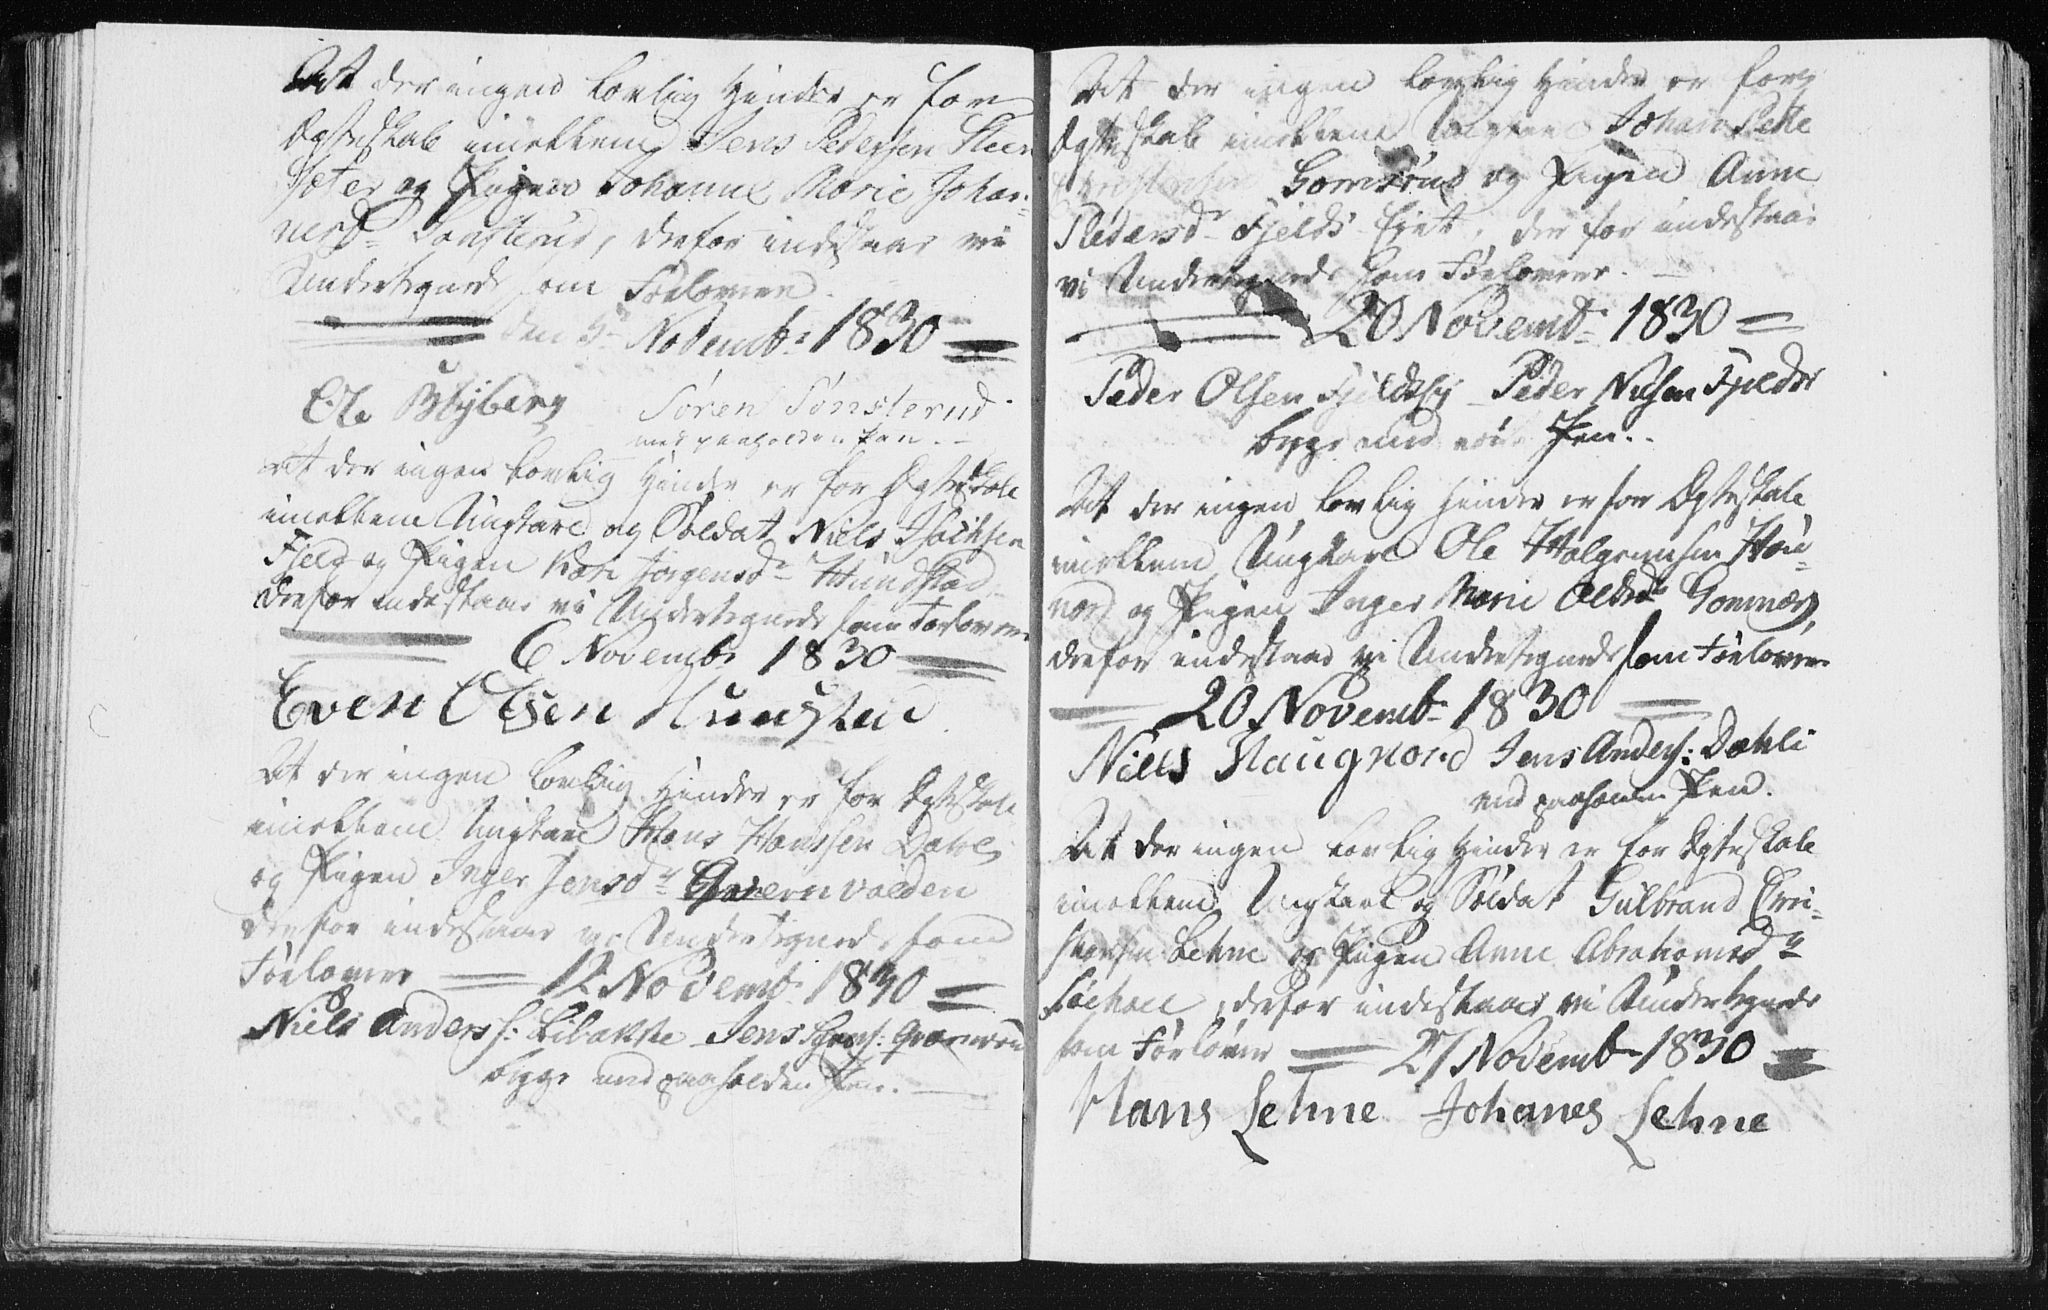 At der ingen lovlig Hinder er for
Ægteskab imellem Jens Pedersen Steen
sæter og Pigen Johanne Marie Johan-
nesdr Sønsterud, derfor indestaar vi
Undertegnede som Forlovere.
den 5 Novembr 1830
Ole Blyberg Søren Sønsterud
med paaholden Pen.
At der ingen lovlig Hinder er for Ægteskab
imellem Ungkarl og Soldat Niels Isachsen
Field og Pigen Jørgensdr Hundstad
derfor indestaar vi Undertegnede som Forlovere
6 Novembr 1830
Even Olsen Hunstad
At der ingen lovlig Hinder er for Ægteskab
imellem Ungkarl Hans Hanssen Dahl
og Pigen Inger Jensdr Qværnvolden
derfor indestaar vi Undertegnede som
Forlovere 12 Novembr 1830
Niels Anders s: Libakke Jens
begge med paaholden Pen.
At der ingen lovlig Hinder er for
Ægteskab imellem Johan
Gomsrud og Pigen Anne
Pedersdr Fjelds Eiet, der for indestaar
vi Undertegnede som Forlovere.
20 Novembr 1830
Peder Olsen Peder Nilsen
begge med Pen.
At der ingen lovlig Hinder er for Ægteskab
imellem Ungkarl Ole Halgrimsen Hau-
nord og Pigen Inger Marie Olsdr Gommæs,
derfor indestaar vi Undertegnede som Forlovere
20 Novembr 1830
Niels Haugnord Jens Anders: Dæhli
med paaholden Pen.
At der ingen lovlig Hinder er for Ægteskab
imellem Ungkarl og Soldat Gulbrand Chri-
stensen Lehne og Pigen Anne Abrahamsdr
derfor indestaar vi Undertegnede
som Forlovere 27 Novembr 1830
Hans Lehne Johanes Lehne